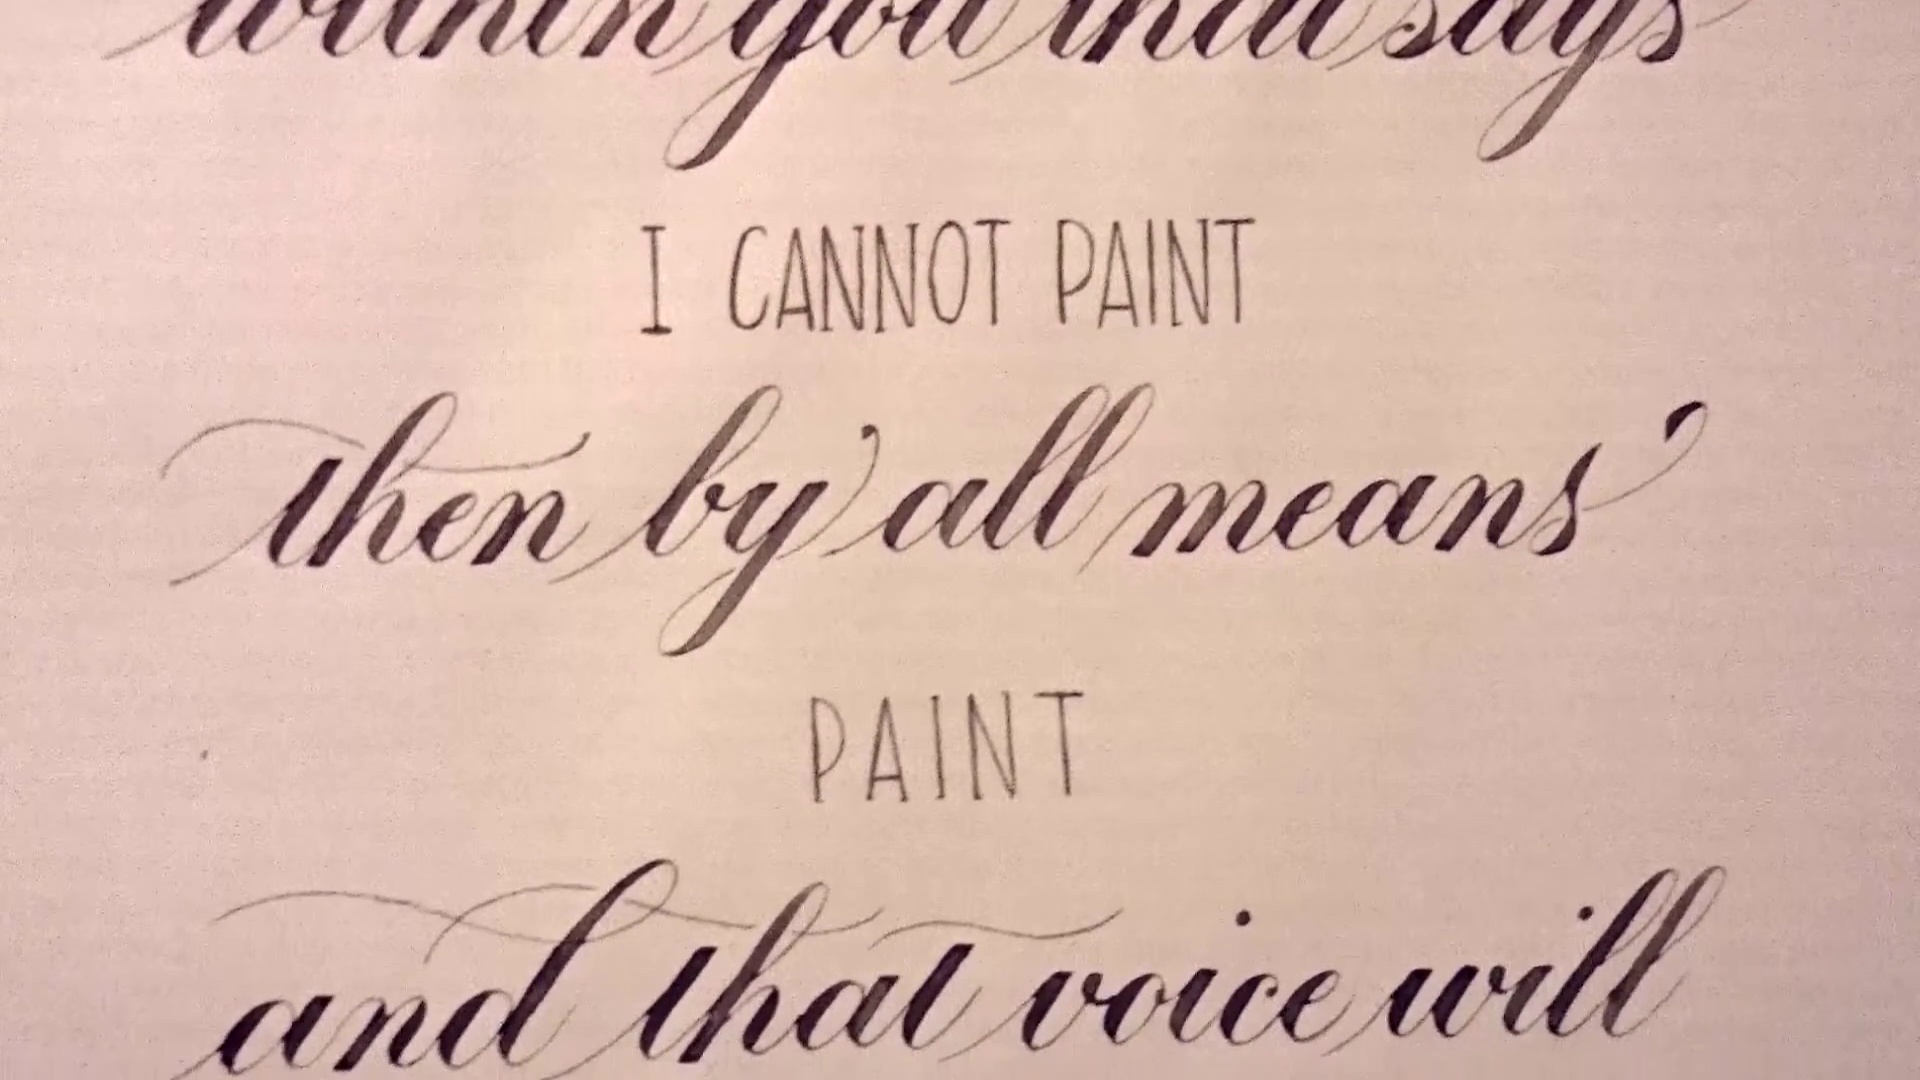 within you that says
I CANNOT PAINT
then by all means
PAINT
and that voice will